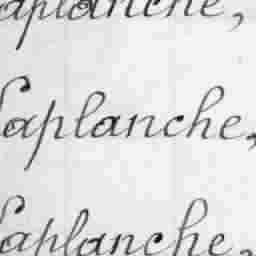 Laplanche,
Laplanche,
Laplanche,